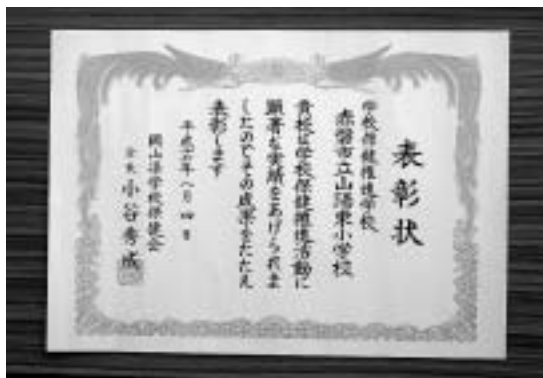 表彰状
学校保健推進学校
赤磐市立山陽東小学校
貴校は学校保健推進活動に
顕著な実績をあげられま
したのでその成果をたたえ
表彰します
岡山県学校保健会
会長 小谷秀成